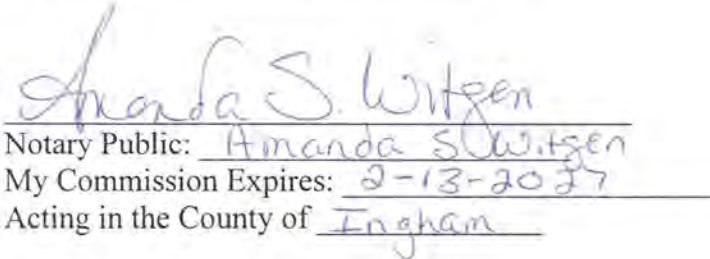 Amanda S. Witgen
Notary Public: Amanda S. Witgen
My Commission Expires: 2-13-2027
Acting in the County of Ingham